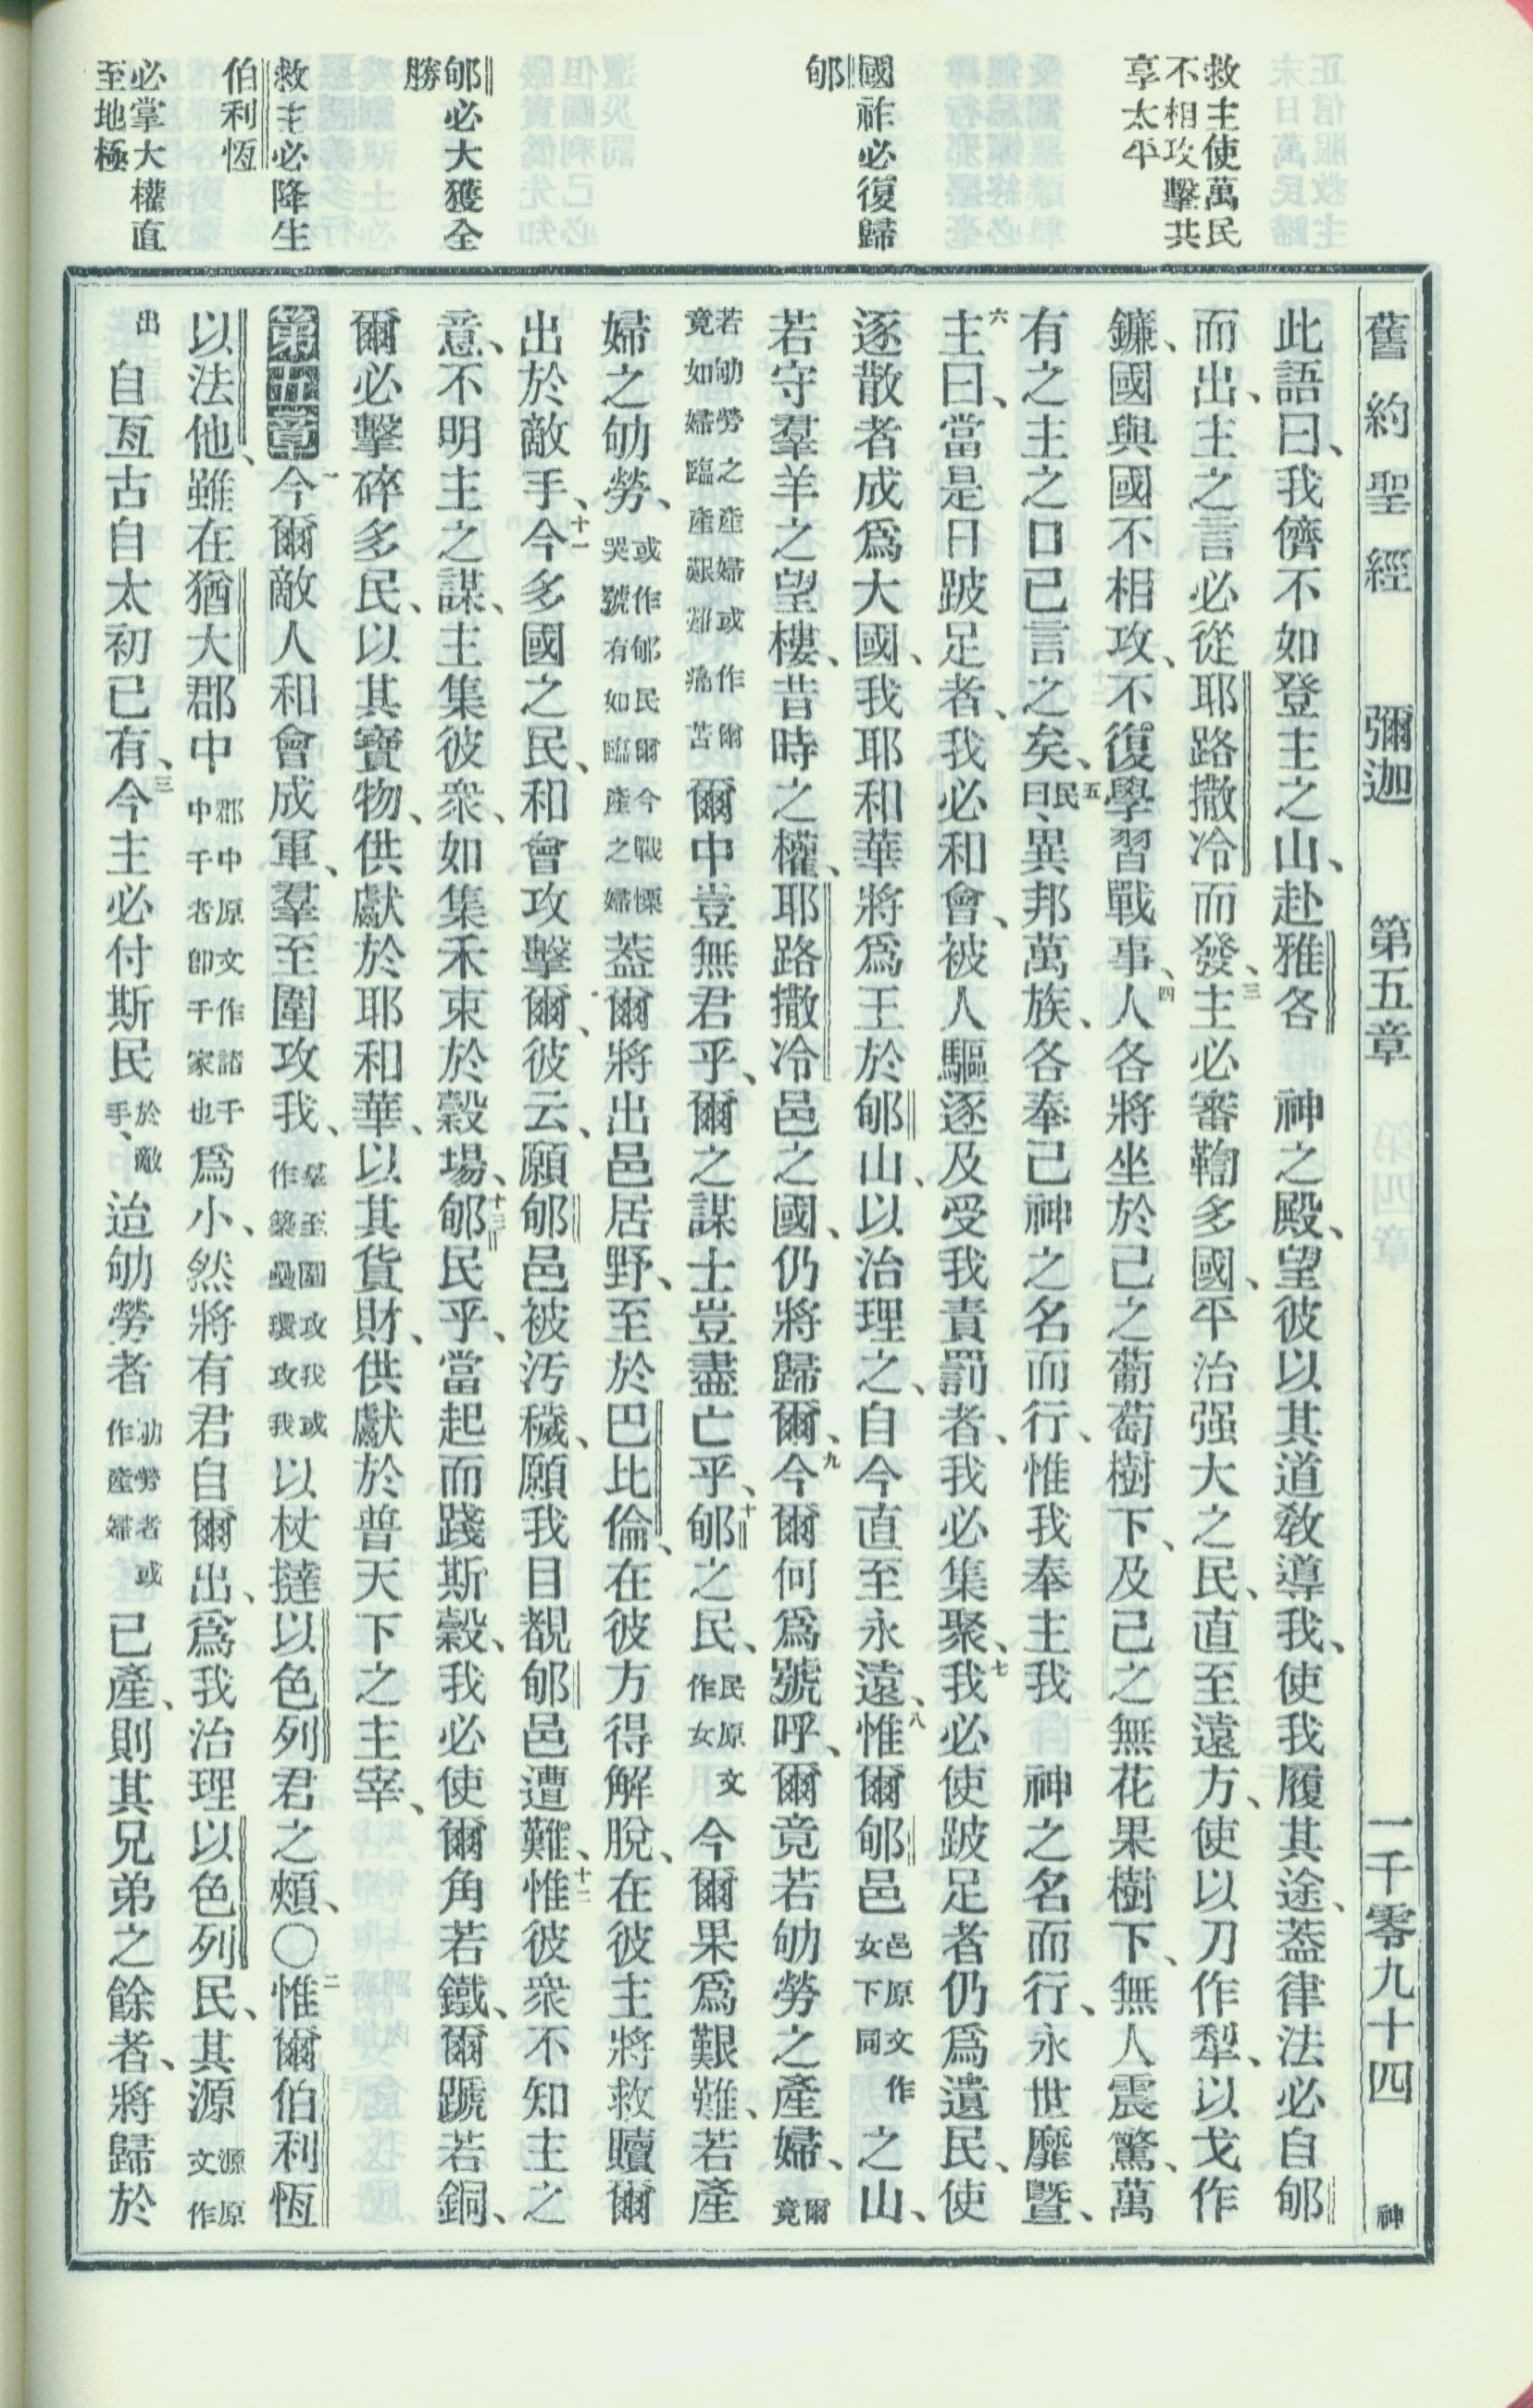 舊約聖經 彌迦 第五章 一千零九十四 神
救主使萬民
不相攻擊共
享太平
國祚必復歸
郇
郇必大獲全
勝
救主必降生
伯利恆
必掌大權直
至地極
此語曰、我儕不如登主之山、赴雅各 神之殿、望彼以其道敎導我、使我履其途、蓋律法必自郇
而出、主之言必從耶路撒冷而發、三主必審鞫多國、平治强大之民、直至遠方、使以刀作犁、以戈作
鐮、國與國不相攻、不復學習戰事、四人各將坐於己之葡萄樹下、及己之無花果樹下、無人震驚、萬
有之主之口已言之矣、五民曰、異邦萬族、各奉己神之名而行、惟我奉主我 神之名而行、永世靡曁、
六主曰、當是日跛足者、我必和會、被人驅逐及受我責罰者、我必集聚、七我必使跛足者仍爲遺民、使
逐散者成爲大國、我耶和華將爲王於郇山、以治理之、自今直至永遠、八惟爾郇邑邑原文作女下同之山、
若守羣羊之望樓、昔時之權、耶路撒冷邑之國、仍將歸爾、九今爾何爲號呼、爾竟若劬勞之產婦、爾竟
若劬勞之產婦或作爾竟如婦臨產艱難痛苦爾中豈無君乎、爾之謀士豈盡亡乎、十郇之民、民原文作女今爾果爲艱難、若產
婦之劬勞、或作郇民爾今戰慄哭號有如臨產之婦蓋爾將出邑居野、至於巴比倫、在彼方得解脫、在彼主將救贖爾
出於敵手、十一今多國之民、和會攻擊爾、彼云、願郇邑被汚穢、願我目覩郇邑遭難、十二惟彼衆不知主之
意、不明主之謀、主集彼衆、如集禾束於穀場、十三郇民乎、當起而踐斯穀、我必使爾角若鐵、爾蹏若銅、
爾必擊碎多民、以其寶物、供獻於耶和華、以其貨財、供獻於普天下之主宰、
第五章 一今爾敵人和會成軍、羣至圍攻我、羣至圍攻我或作築壘環攻我以杖撻以色列君之頰、〇二惟爾伯利恆
以法他、雖在猶大郡中郡中原文作諸千中千者卽千家也爲小、然將有君自爾出、爲我治理以色列民、其源源原文作
出自亙古自太初已有、三今主必付斯民於敵手、迨劬勞者劬勞者或作產婦已產、則其兄弟之餘者、將歸於